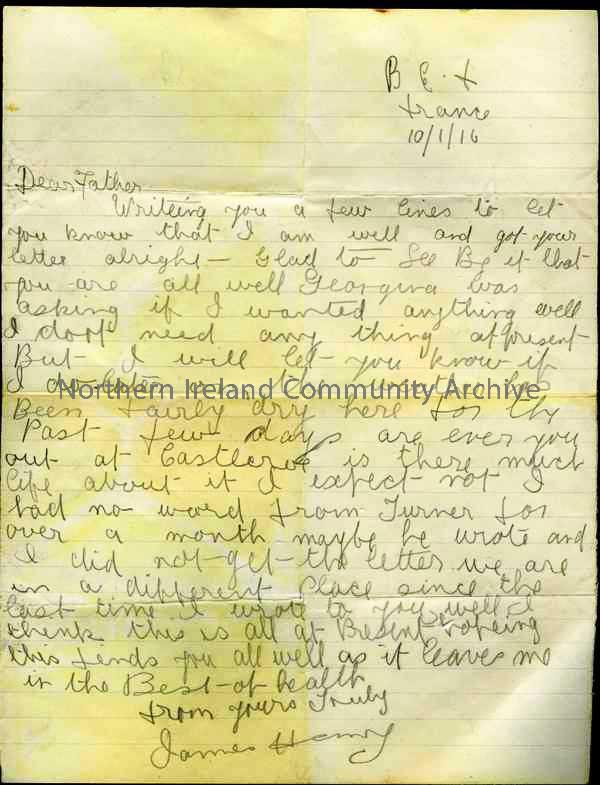 B E. F
France
10/1/16
Dear Father
Writeing you a few lines to let
you know that I am well and got your
letter alright Glad to See By it that
you are all well Georgina was
asking if I wanted anything well
I dont need any thing at present
But I will let you know if
I do later on the weather has
Been fairly dry here for the
Past few days are ever you
out at is there much
life about it I expect not I
had no word from Turner for
over a month maybe he wrote and
I did not get the letter we are
in a different Place since the
last time I wrote to you well I
think this is all at Present hopeing
this fends you all well as it leaves me
in the Best of health
from yours Truly
James Henry
Northern Ireland Community Archive